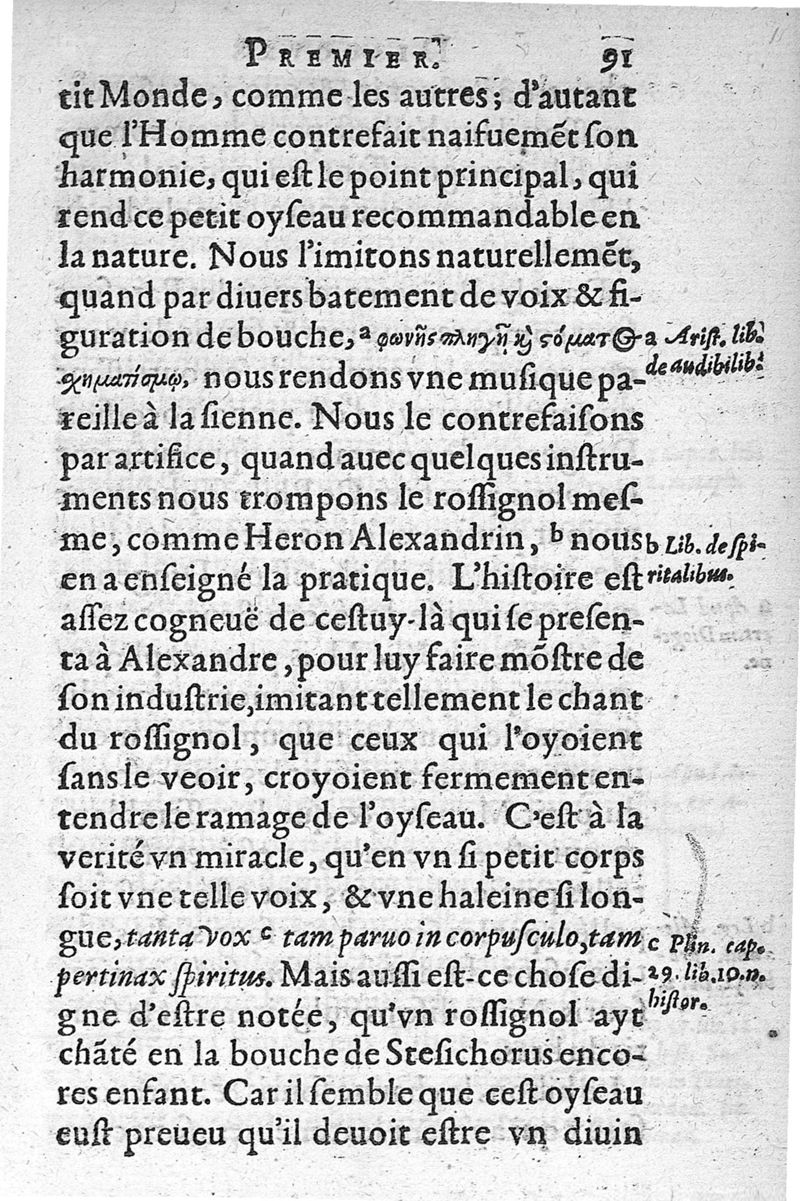 PREMIER. 91
tit Monde, comme les autres; d'autant
que l'Homme contrefait naifuemẽt ſon
harmonie, qui eſt le point principal, qui
rend ce petit oyſeau recommandable en
la nature. Nous l'imitons naturellemẽt,
quand par diuers batement de voix & fi-
guration de bouche, ᵃ φωνῆς πληγῇ ϗ̀ ϛόματ⊙
χηματίσμῳ, nous rendons vne muſique pa-
reille à la ſienne. Nous le contrefaiſons
par artifice, quand auec quelques inſtru-
ments nous trompons le roſſignol meſ-
me, comme Heron Alexandrin, ᵇ nous
en a enſeigné la pratique. L'hiſtoire eſt
aſſez cogneuë de ceſtuy-là qui ſe preſen-
ta à Alexandre, pour luy faire mõſtre de
ſon induſtrie, imitant tellement le chant
du roſſignol, que ceux qui l'oyoient
ſans le veoir, croyoient fermement en-
tendre le ramage de l'oyſeau. C'eſt à la
verité vn miracle, qu'en vn ſi petit corps
ſoit vne telle voix, & vne haleine ſi lon-
gue, tanta vox ᶜ tam paruo in corpuſculo, tam
pertinax ſpiritus. Mais auſſi eſt-ce choſe di-
gne d'eſtre notée, qu'vn roſſignol ayt
chãté en la bouche de Steſichorus enco-
res enfant. Car il ſemble que ceſt oyſeau
euſt preueu qu'il deuoit eſtre vn diuin
a Ariſt. lib.
de audibilib.
b Lib. de ſpi-
ritalibus.
c Plin. cap.
29. lib. 10. n.
hiſtor.